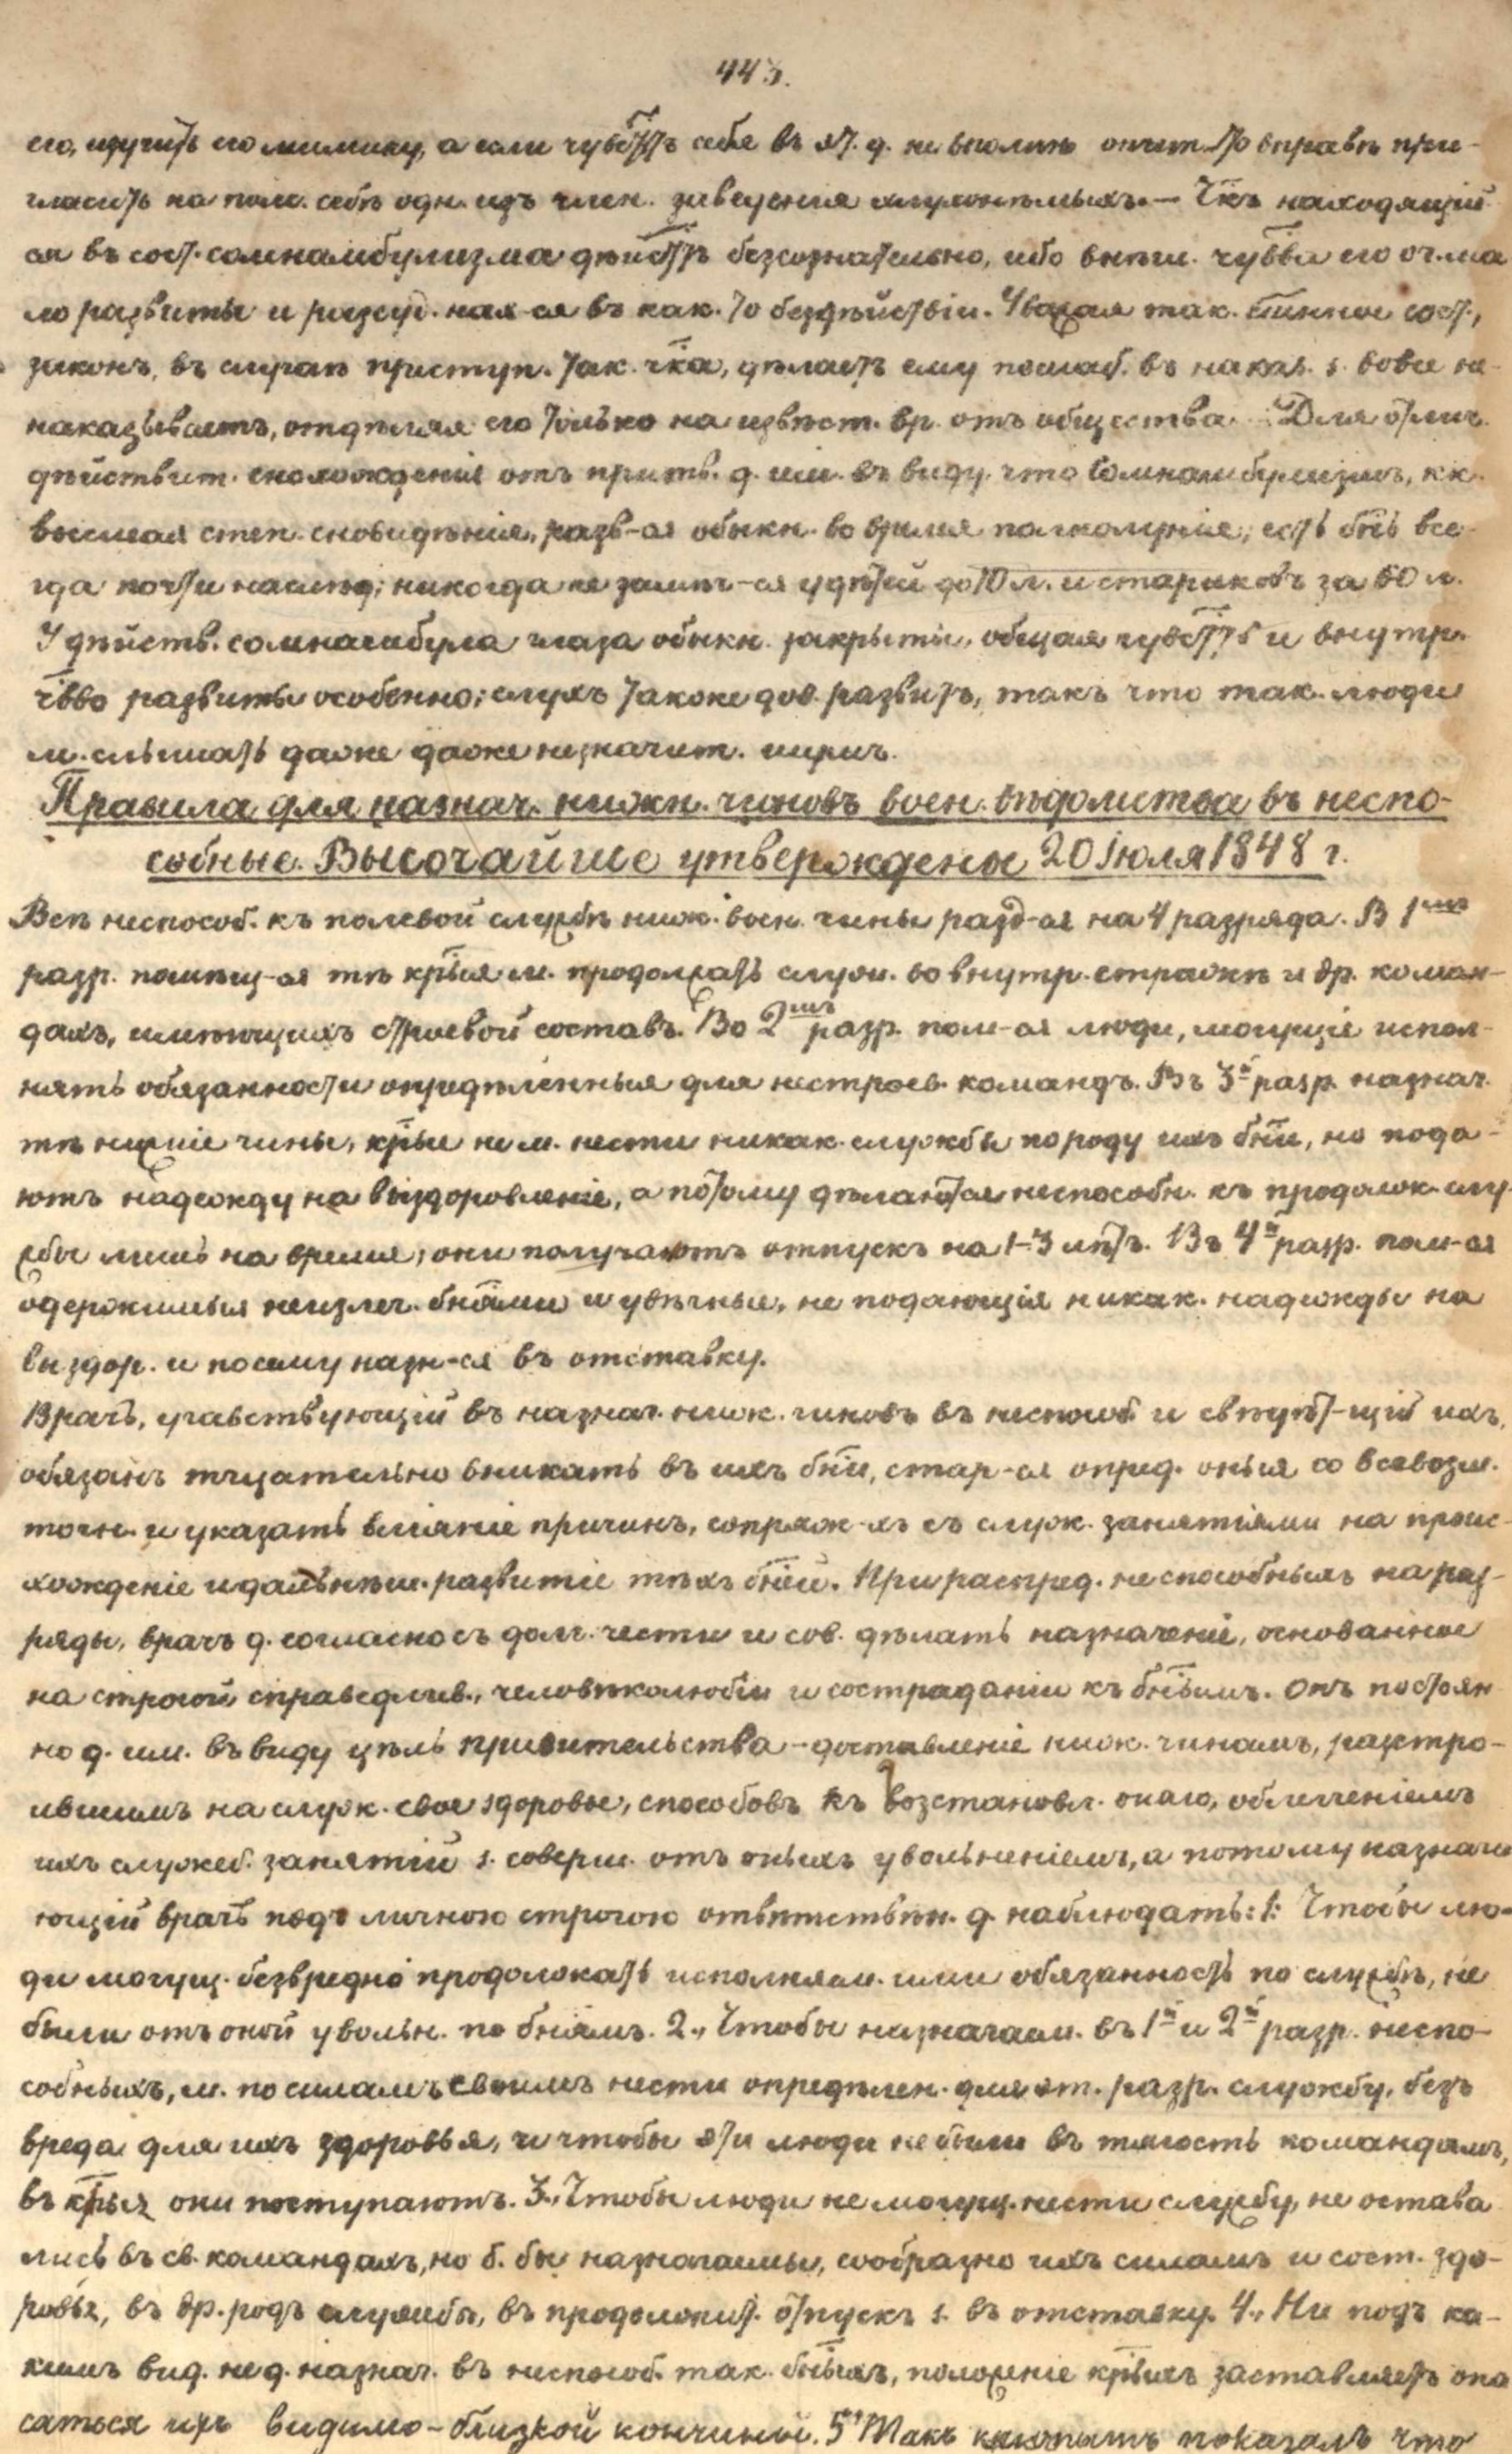 443.
его, изучить его мимику, а если чувств-тъ себя въ эт. д. не вполнѣ опытн. то вправѣ при-
гласить на пом. себѣ одн. изъ член. заведенія глухонѣмыхъ. — Чкъ находящій
ся въ сост. сомнамбулизма дѣйств-тъ безсознательно, ибо внѣш. чувва его оч. ма
ло развиты и разсуд. нах-ся въ как. то бездѣйствіи. Уважая так. сост.,
законъ, въ случаѣ преступ. так. чка, дѣлаетъ ему послаб. въ наказ. s. вовсе не
наказываетъ, отдѣляя его только на извѣст. вр. отъ общества. Для отлич.
дѣйствит. снохожденія отъ притв. д. им. въ виду что сомнамбулизмъ, кк
высшая степ. сновидѣнія, разв-ся обыкн. во время полнолунія; есть бнь все-
гда почти наслѣд; никогда не замѣч-ся у дѣтей до 10 л. и стариковъ за 60 л.
У дѣйств. сомнамбула глаза обыкн. закрыты, общая чувств-ть и внутр.
чвво развиты особенно; слухъ также дов. развитъ, такъ что так. люди
м. слышать даже даже незначит. шумъ.
Правила для назнач. нижн. чиновъ воен. вѣдомства въ неспо-
собные. Высочайше утверждены 20 Іюля 1848 г.
Всѣ неспособ. къ полевой службѣ ниж. воен. чины разд-ся на 4 разряда. В 1мъ
разр. помѣщ-ся тѣ крыя м. продолжать служ. во внутр. стражѣ и др. коман-
дахъ, имѣющихъ строевой составъ. Во 2мъ разр. пом-ся люди, могущіе испол-
нять обязанности опредѣленныя для нестроев. командъ. Въ 3й разр. назнач.
тѣ нижніе чины, крые не м. нести никак. службы по роду ихъ бни, но пода-
ютъ надежду на выздоровленіе, а потому дѣлаются неспособн. къ продолж. слу-
жбы лишь на время; они получаютъ отпускъ на 1-3 лѣтъ. Въ 4й разр. пом-ся
одержимыя неизлеч. бнями и увѣчные, не подающія никак. надежды на
выздор. и посему назн-ся въ отставку.
Врачъ, участвующій въ назнач. ниж. чиновъ въ неспособ. и свидѣт-щій ихъ,
обязанъ тщательно вникать въ ихъ бни, стар-ся опред. оныя со всевозм.
точн. и указать вліяніе причинъ, сопряж-хъ съ служ. занятіями на проис-
хожденіе и дальнѣйш. развитіе тѣхъ бней. При распред. неспособныхъ на раз-
ряды, врачъ д. согласно съ долг. чести и сов. дѣлать назначеніе, основанное
на строгой справедлив., человѣколюбіи и состраданіи къ бнымъ. Онъ постоян
но д. им. въ виду цѣль правительства - доставленіе ниж. чинамъ, разстро-
ившимъ на служ. свое здоровье, способовъ къ возстановл. онаго, облегченіемъ
ихъ служеб. занятій s. соверш. отъ оныхъ увольненіемъ, а потому назнача
ющій врачъ подъ личною строгою отвѣтствен. д. наблюдать: 1: Чтобы лю-
ди могущ. безвредно продолжать исполняем. ими обязанность по службѣ, не
были отъ оной увольн. по бнямъ. 2., Чтобы назначаем. въ 1й и 2й разр. неспо-
собныхъ, м. по силамъ своимъ нести опредѣлен. для эт. разр. службу, безъ
вреда для ихъ здоровья, и чтобы эти люди не были въ тягость командамъ,
въ крыя они поступаютъ. 3., Чтобы люди не могущ. нести службу, не остава
лись въ св. командахъ, но б. бы назначаемы, сообразно ихъ силамъ и сост. здо-
ровья, въ др. родъ службы, въ продолжит. отпускъ s. въ отставку. 4., Ни подъ ка-
кимъ вид. не д. назнач. въ неспособ. так. бныхъ, положеніе крыхъ заставляетъ опа
саться ихъ видимо-близкой кончины. 5., Такъ какъ опытъ показалъ что